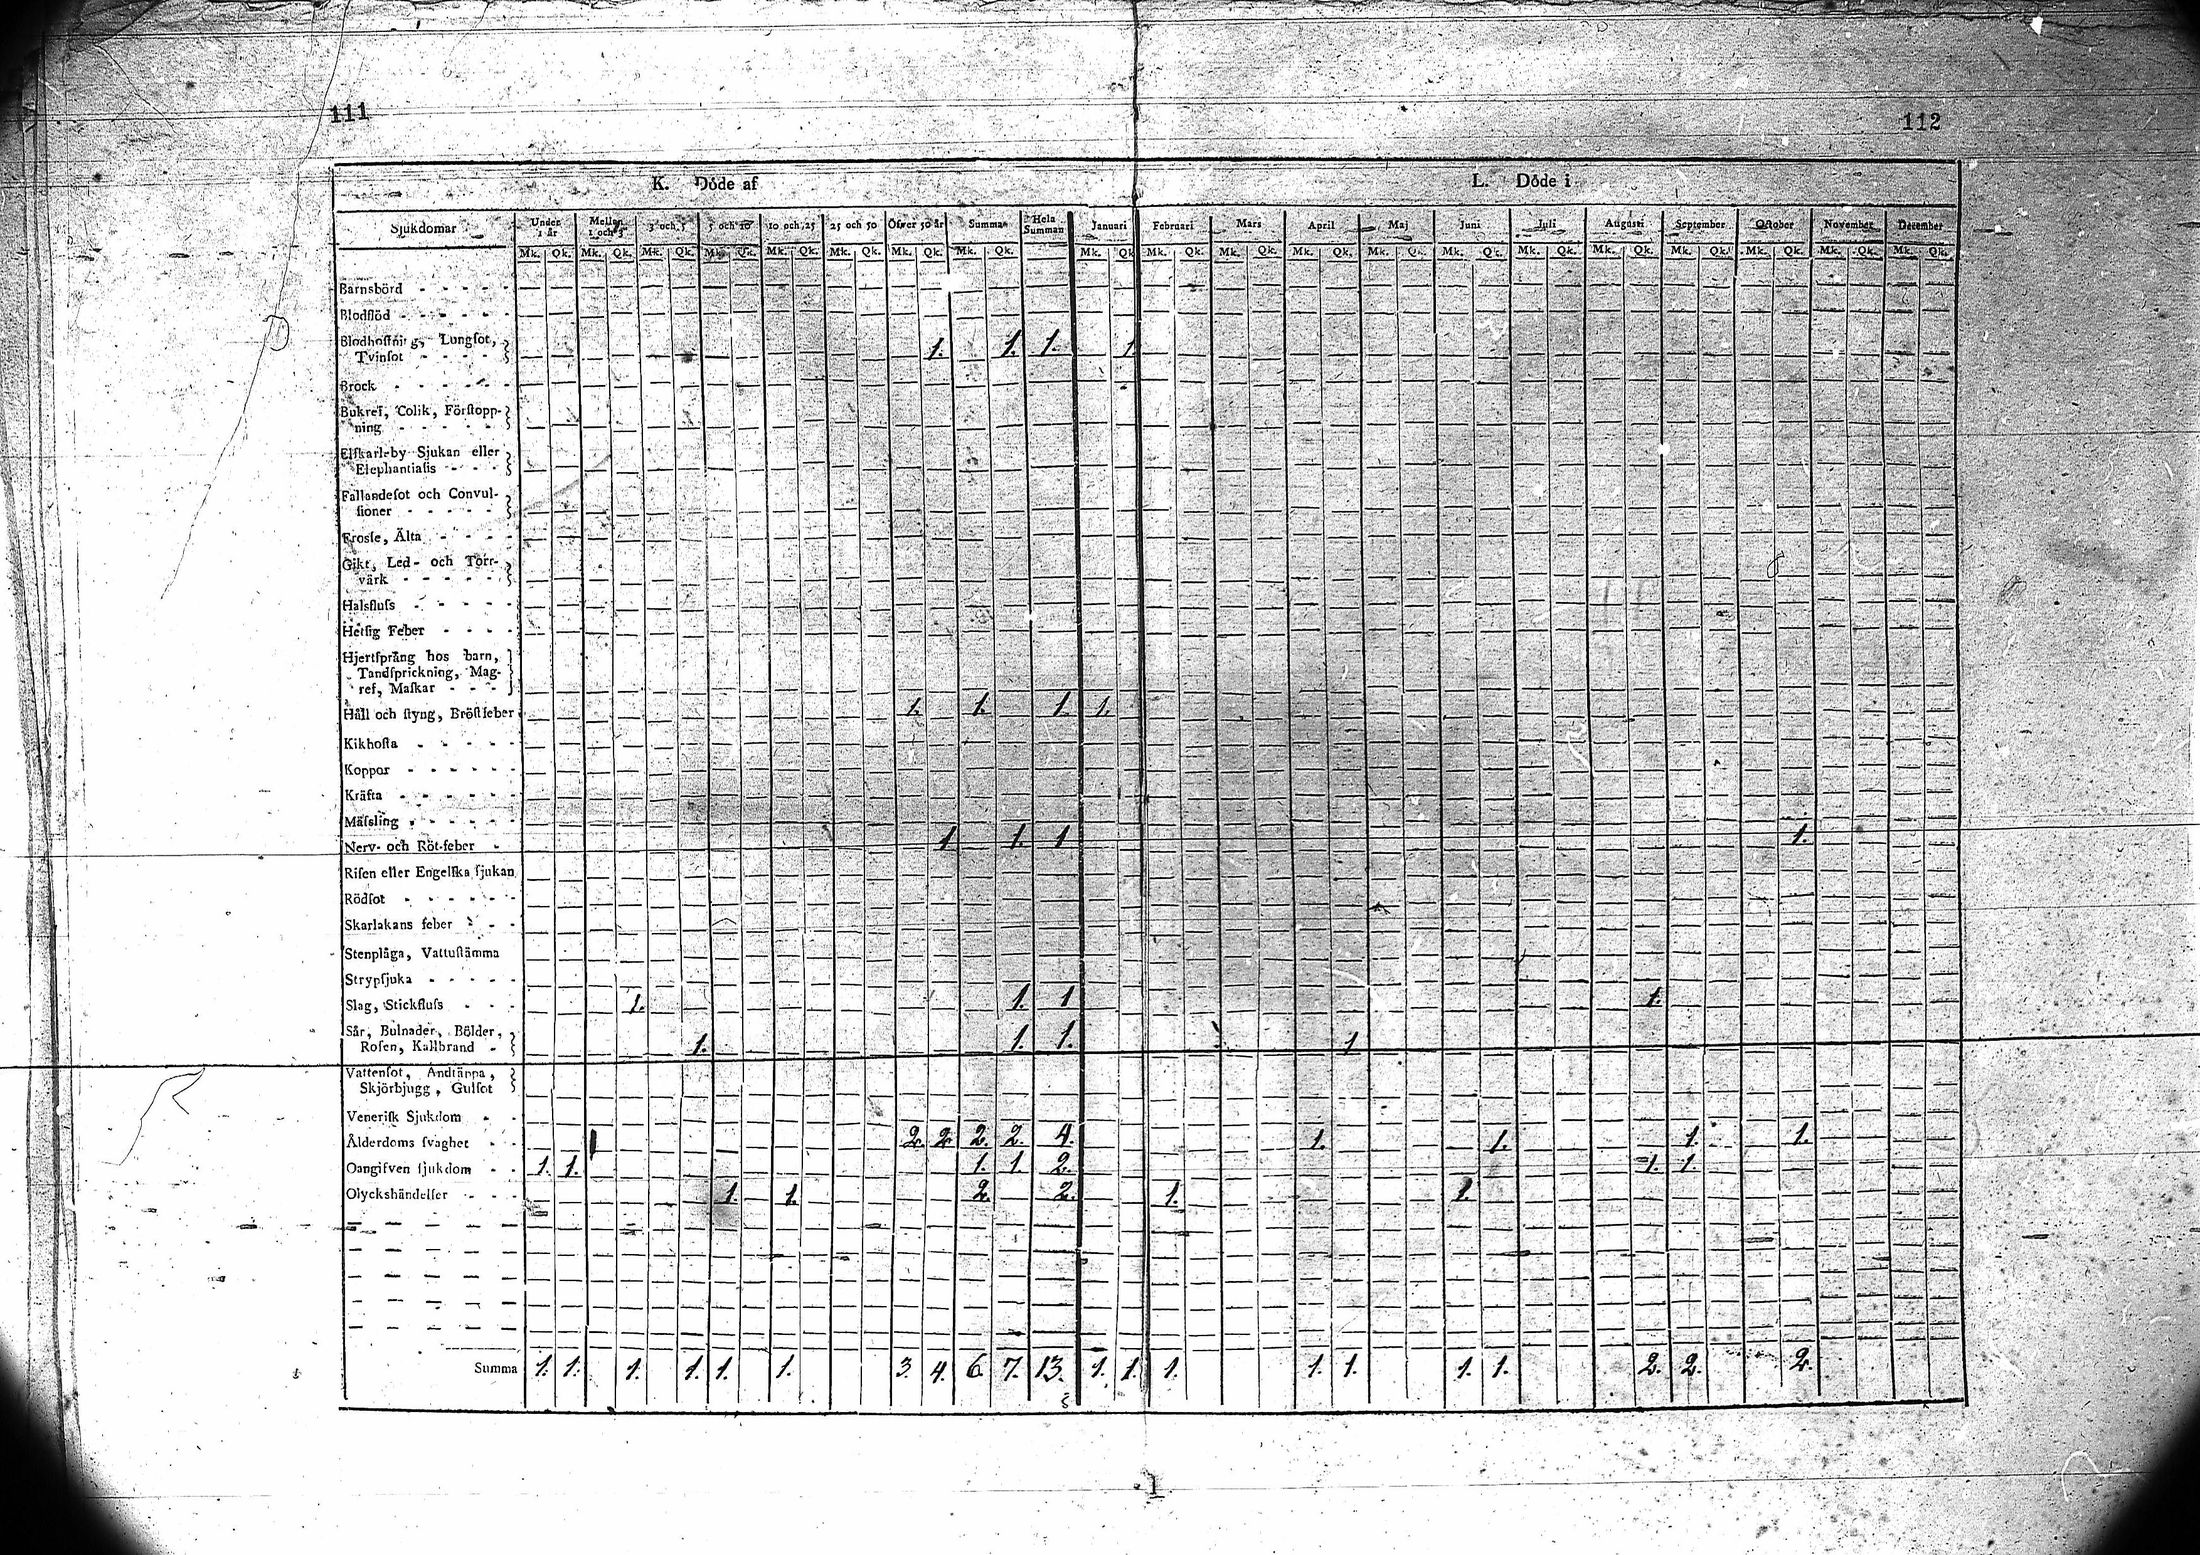 111
112
K. Döde af
L. Döde i
Sjukdomar Under 1 år Mellan 1 och 3 3 och 5 5 och 10 10 och 25 25 och 50 Öfver 50 år Summa Hela Summan Januari Februari Mars April Maj Juni Juli Augusti September October November December
Mk. Qk. Mk. Qk. Mk. Qk. Mk. Qk. Mk. Qk. Mk. Qk. Mk. Qk. Mk. Qk. Mk. Qk. Mk. Qk. Mk. Qk. Mk. Qk. Mk. Qk. Mk. Qk. Mk. Qk. Mk. Qk. Mk. Qk. Mk. Qk. Mk. Qk. Mk. Qk.
Barnsbörd
Blodflöd
Blodhoſtning, Lungſot,
Tvinſot 1. 1. 1. 1
Brock
Bukref, Colik, Förſtopp-
ning
Elſkarleby Sjukan eller
Elephantiaſis
Fallandeſot och Convul-
ſioner
Frosſe, Älta
Gikt, Led- och Torr-
värk
Halsfluſs
Hetſig Feber
Hjertſprång hos barn,
Tandſprickning, Mag-
ref, Maſkar
Håll och ſtyng, Bröſtfeber 1. 1. 1. 1.
Kikhoſta
Koppor
Kräfta
Mäſsling
Nerv- och Röt-feber 1 1. 1 1.
Riſen eller Engelſka ſjukan
Rödſot
Skarlakans feber
Stenplåga, Vattuſtämma
Strypſjuka
Slag, Stickfluſs 1. 1. 1 1.
Sår, Bulnader, Bölder,
Roſen, Kallbrand 1. 1. 1. 1
Vattenſot, Andtäppa,
Skjörbjugg, Gulſot
Veneriſk Sjukdom
Ålderdoms ſvaghet 2. 2 2. 2. 4. 1. 1. 1. 1.
Oangifven ſjukdom 1. 1. 1. 1. 2. 1. 1.
Olyckshändelſer 1. 1. 2. 2. 1. 1.
Summa 1. 1. 1. 1. 1. 1. 3. 4. 6. 7. 13. 1. 1. 1. 1. 1. 1. 1. 2. 2. 2.
1